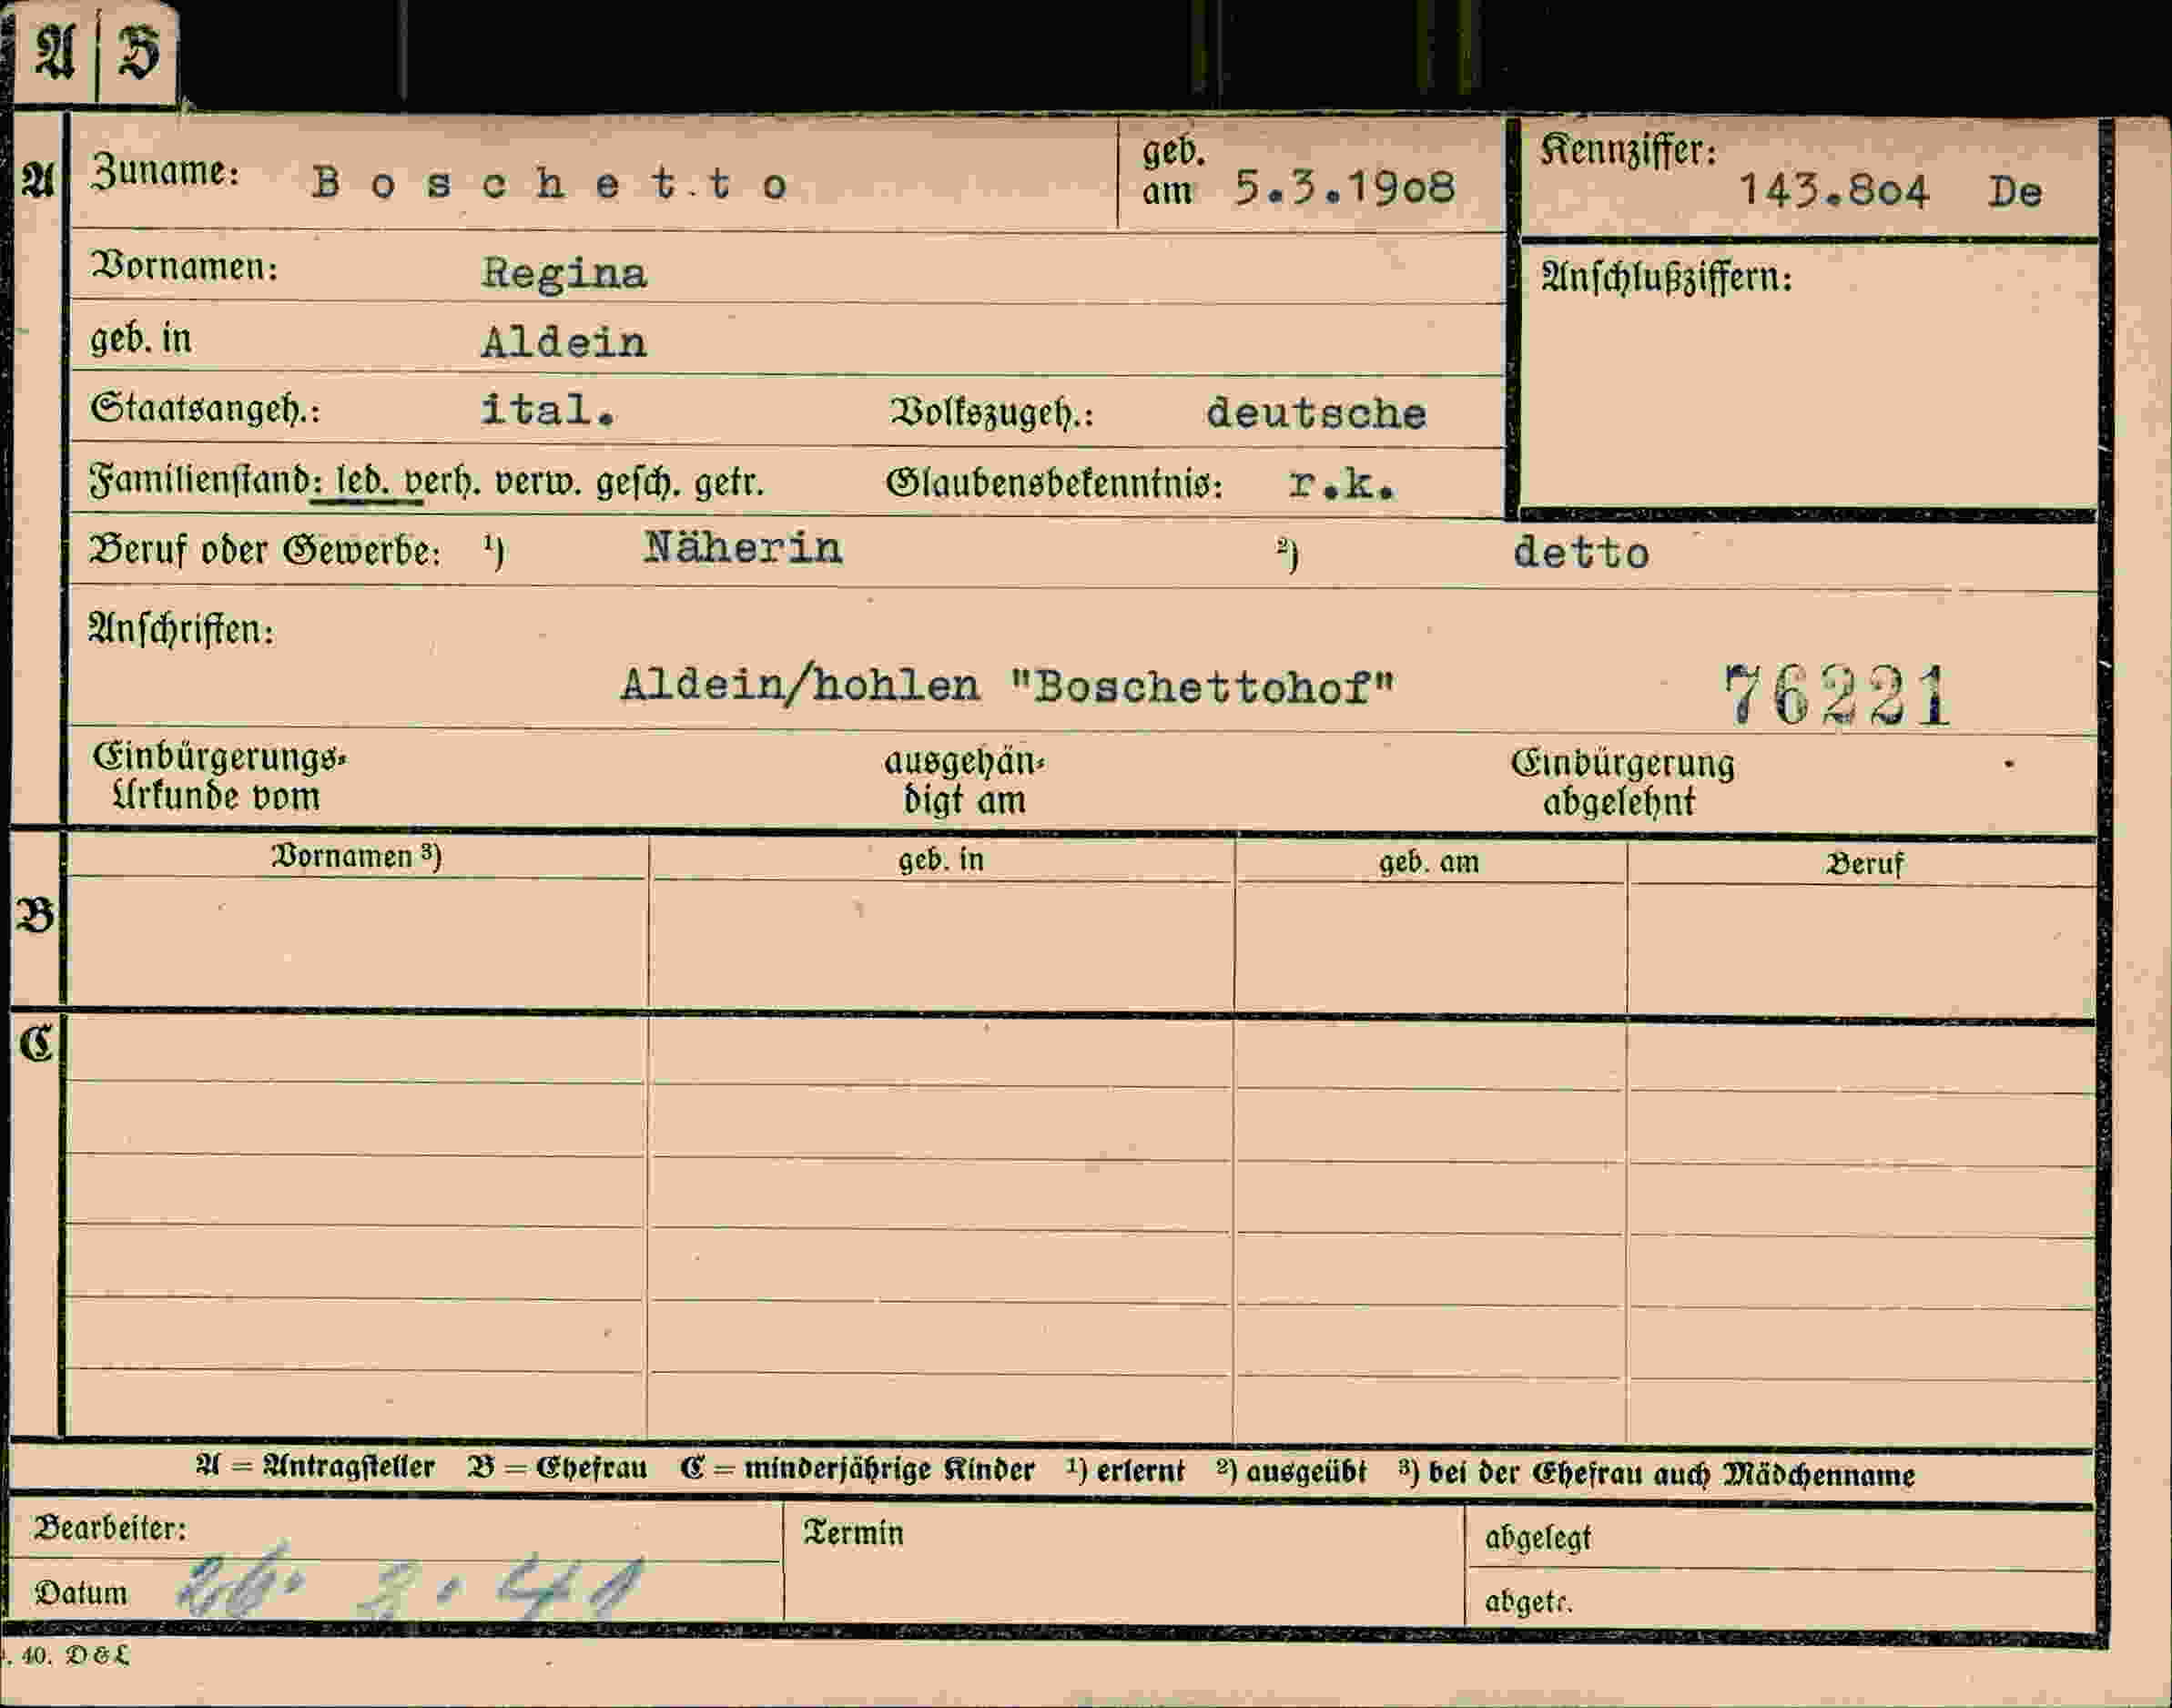 A | B
A Zuname: Boschetto geb. am 5.3.1908 Kennziffer: 143.804 De
Vornamen: Regina Anschlußziffern:
geb. in Aldein
Staatsangeh.: ital. Volkszugeh.: deutsche
Familienstand: led. verh. verw. gesch. getr. Glaubensbekenntnis: r.k.
Beruf oder Gewerbe: ¹) Näherin ²) detto
Anschriften:
Aldein/hohlen "Boschettohof" 76221
Einbürgerungs- ausgehän- Einbürgerung
Urkunde vom digt am abgelehnt
Vornamen ³) geb. in geb. am Beruf
B
C
A = Antragsteller B = Ehefrau C = minderjährige Kinder ¹) erlernt ²) ausgeübt ³) bei der Ehefrau auch Mädchenname
Bearbeiter: Termin abgelegt
Datum 26. 3. 41 abgetr.
. 40. D & L